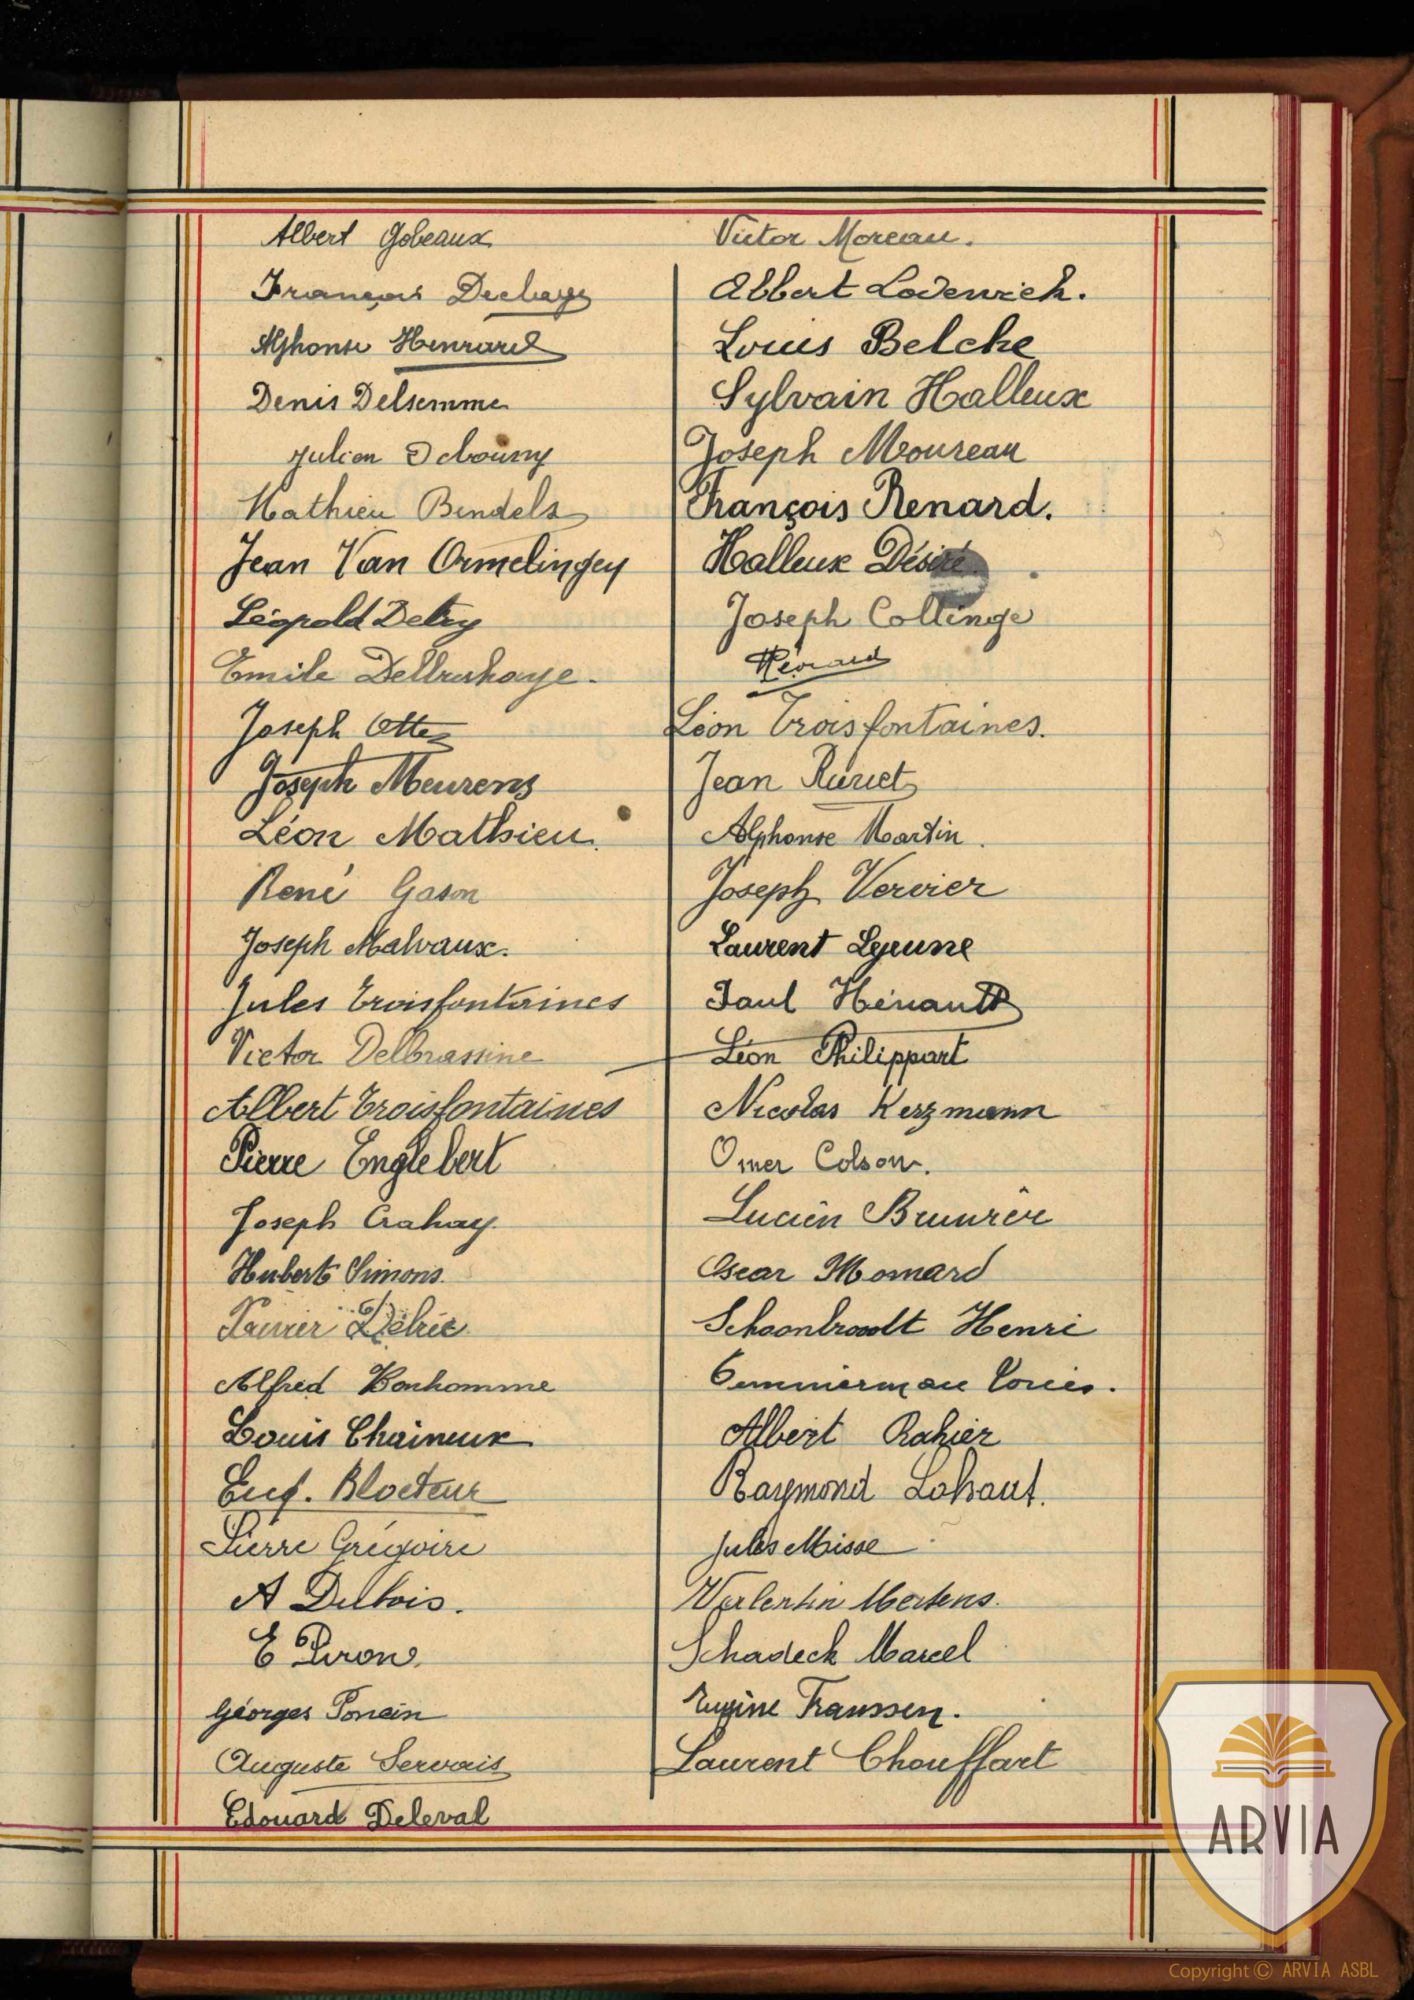 Albert Gobeaux
François Dechays
Alphonse Henrard
Denis Delsemme
Julien Debourny
Mathieu Bindels
Jean Van Ormelingen
Léopold Detry
Emile Delbrushaye.
Joseph Otte
Joseph Meurens
Léon Mathieu.
René Gason
Joseph Malvaux.
Jules Troisfontaines
Victor Delbrassine
Albert Troisfontaines
Pierre Englebert
Joseph Crahay.
Hubert Simons.
Delrée
Alfred Bonhomme
Louis Chaineux
Eug. Blocteur
Pierre Grégoire
A Dubois.
E Piron
Géorges Poncin
Auguste Servais
Edouard Deleval
Victor Moreau.
Albert Lodewick.
Louis Belche
Sylvain Halleux
Joseph Moureau
François Renard.
Halleux Désiré
Joseph Collinge
Léon Troisfontaines.
Jean Ruwet
Alphonse Martin.
Joseph Vervier
Laurent Lejeune
Paul Hénault
Léon Philippart
Nicolas Kerzmann
Omer Colson.
Lucien
Oscar Momard
Schoonbroodt Henri
Albert Rahier
Raymond Lahaut.
Jules Misse
Valentin Mertens.
Schadeck Marcel
Eugène Franssen.
Laurent Chouffart
ARVIA
Copyright © ARVIA ASBL